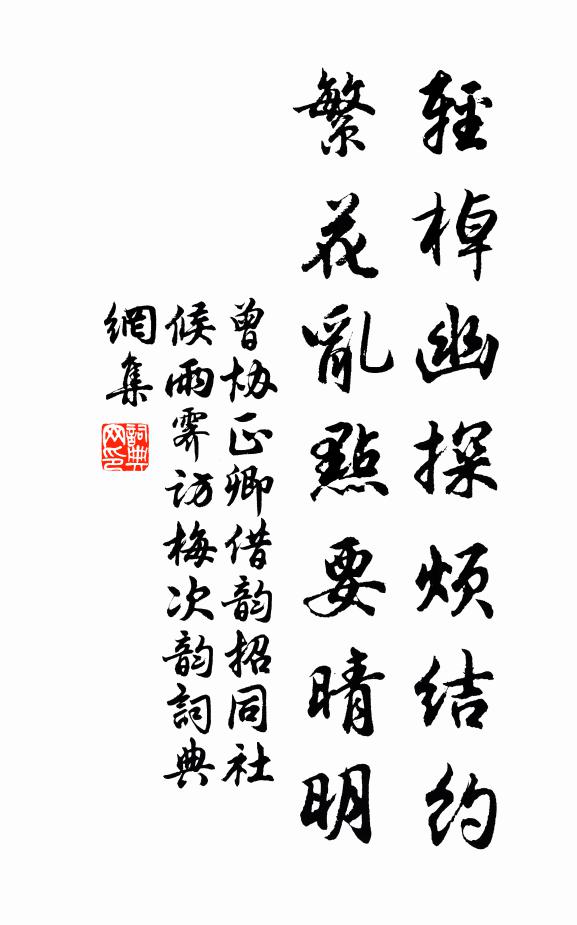 輕棹幽探煩結約
繁花亂點要晴明
曾協正卿借韵招同社
候雨霽訪梅次韵詞典
網集
詞典
网印